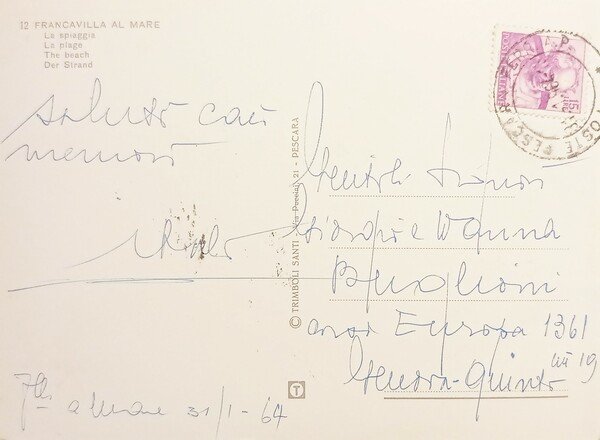 12 FRANCAVILLA AL MARE
La spiaggia
La plage
The beach
Der Strand
saluto cari
memori
© TRIMBOLI SANTI - Via Puccini, 21 - PESCARA
Gentili Signori
Giorgio e Wanna
corso Europa 1361
int 19
Genova-Quinto
a mare 31/1-64
T
POSTE